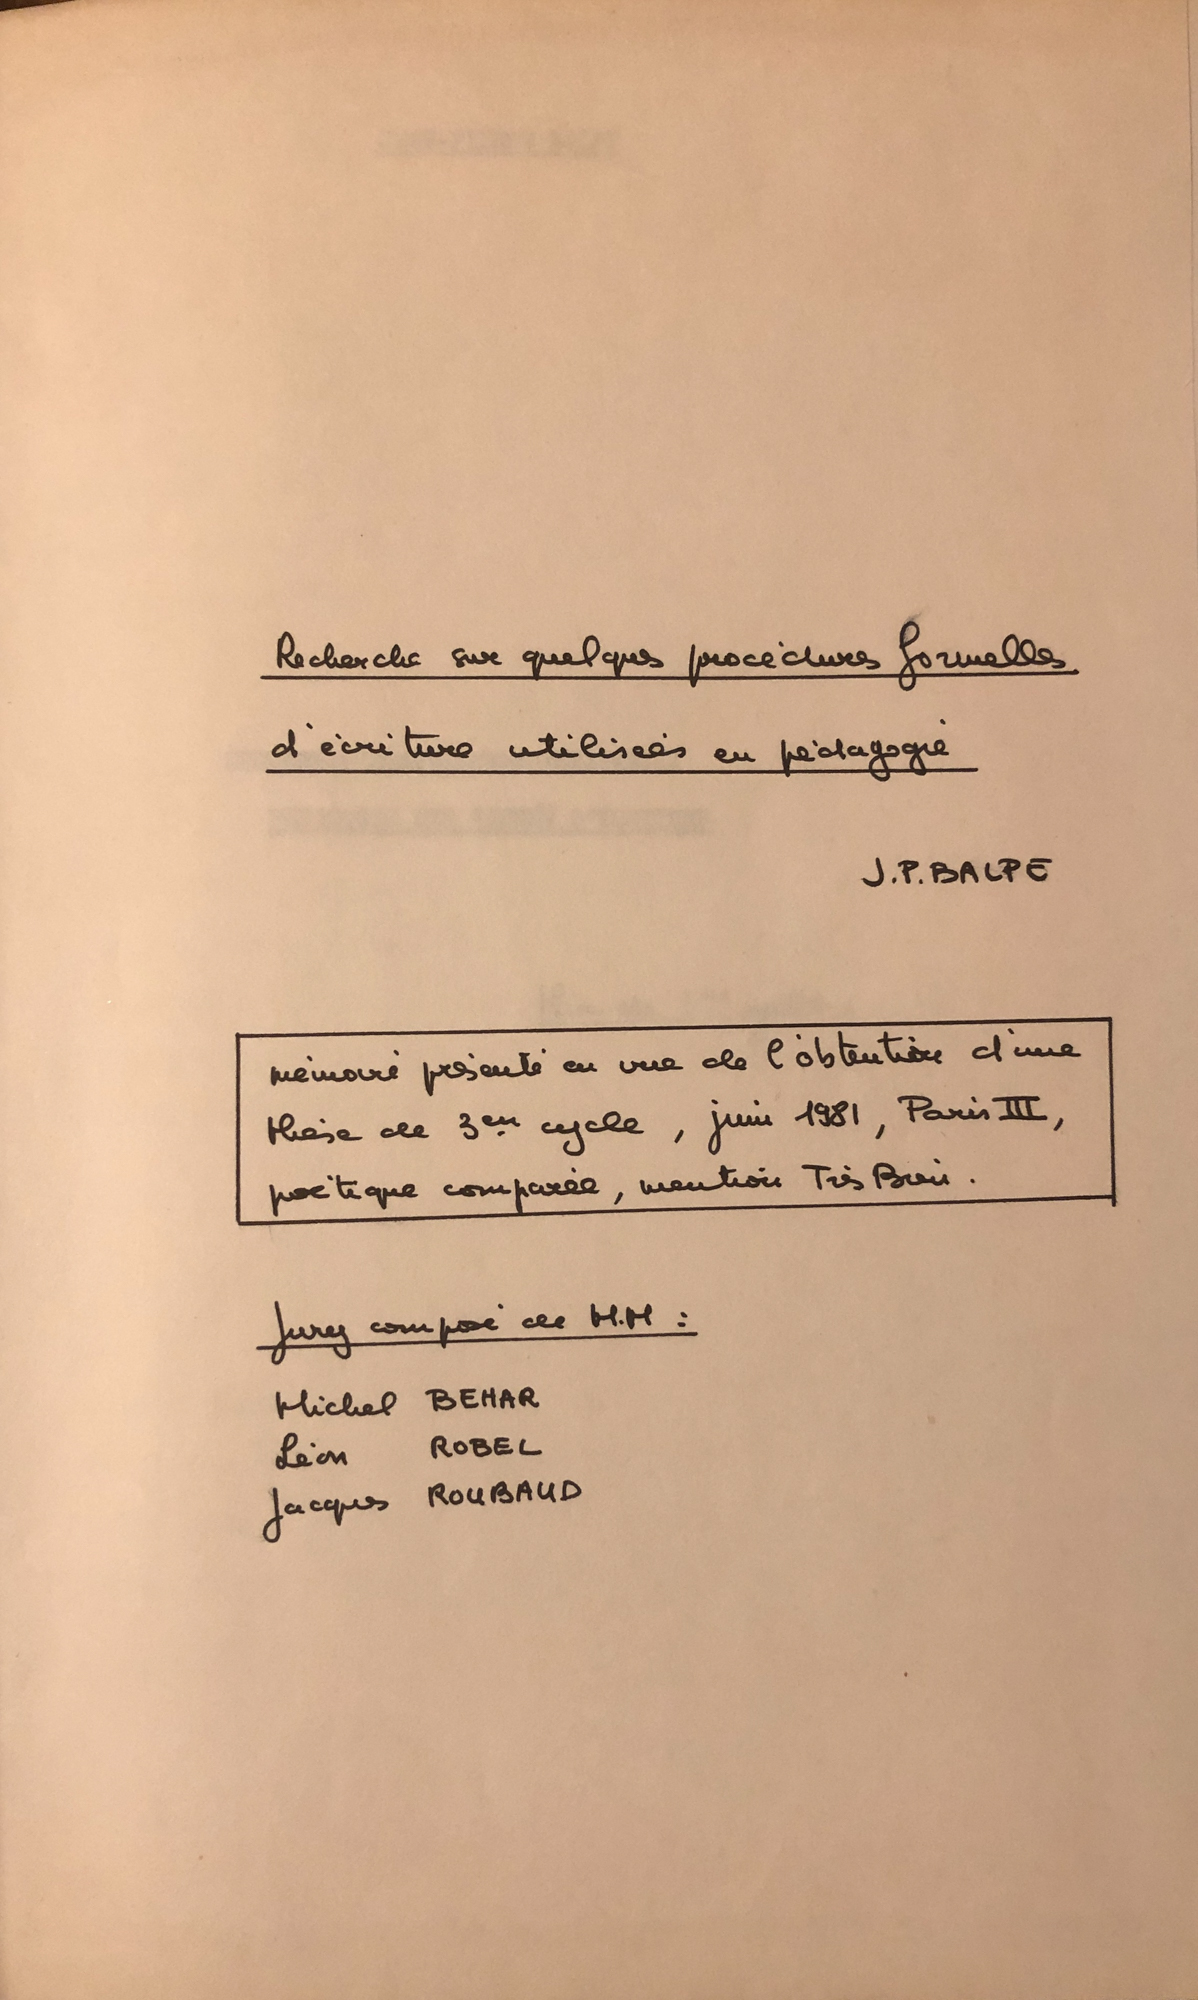 Recherche sur quelques procédures formelles
d'écriture utilisées en pédagogie
J.P. BALPE
mémoire présenté en vue de l'obtention d'une
thèse de 3em cycle, juin 1981, Paris III,
poétique comparée, mention Très Bien.
Jury composé de M.M :
Michel BEHAR
Léon ROBEL
Jacques ROUBAUD